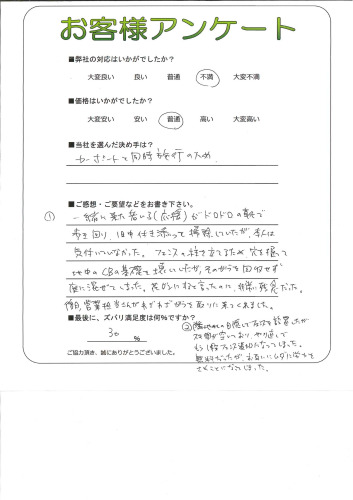 お客様アンケート
■弊社の対応はいかがでしたか？
大変良い 良い 普通 不満 大変不満
■価格はいかがでしたか？
大変安い 安い 普通 高い 大変高い
■当社を選んだ決め手は？
カーポートと同時施行のため
■ご感想・ご要望などをお書き下さい。
① 一緒に来た若い子(応援)がドロドロの靴で
歩き回り、1日中付き添って掃除していたが、本人は
気付いていなかった。フェンスの柱を立てるため穴を掘って
地中のCBの基礎を壊していたが、そのガラを回収せず
庭に混ぜていました。花が
言ったのに、非常に残念だった。
後日、営業担当さんがわざわざガラを取りに来てくれました。
■最後に、ズバリ満足度は何％ですか？
30 %
②隣
の目隠し
を設置したが
やり直しで
もう1
になってしまった。
無料だったが、お互いにムダに
を
することになってしまった。
ご協力頂き、誠にありがとうございました。